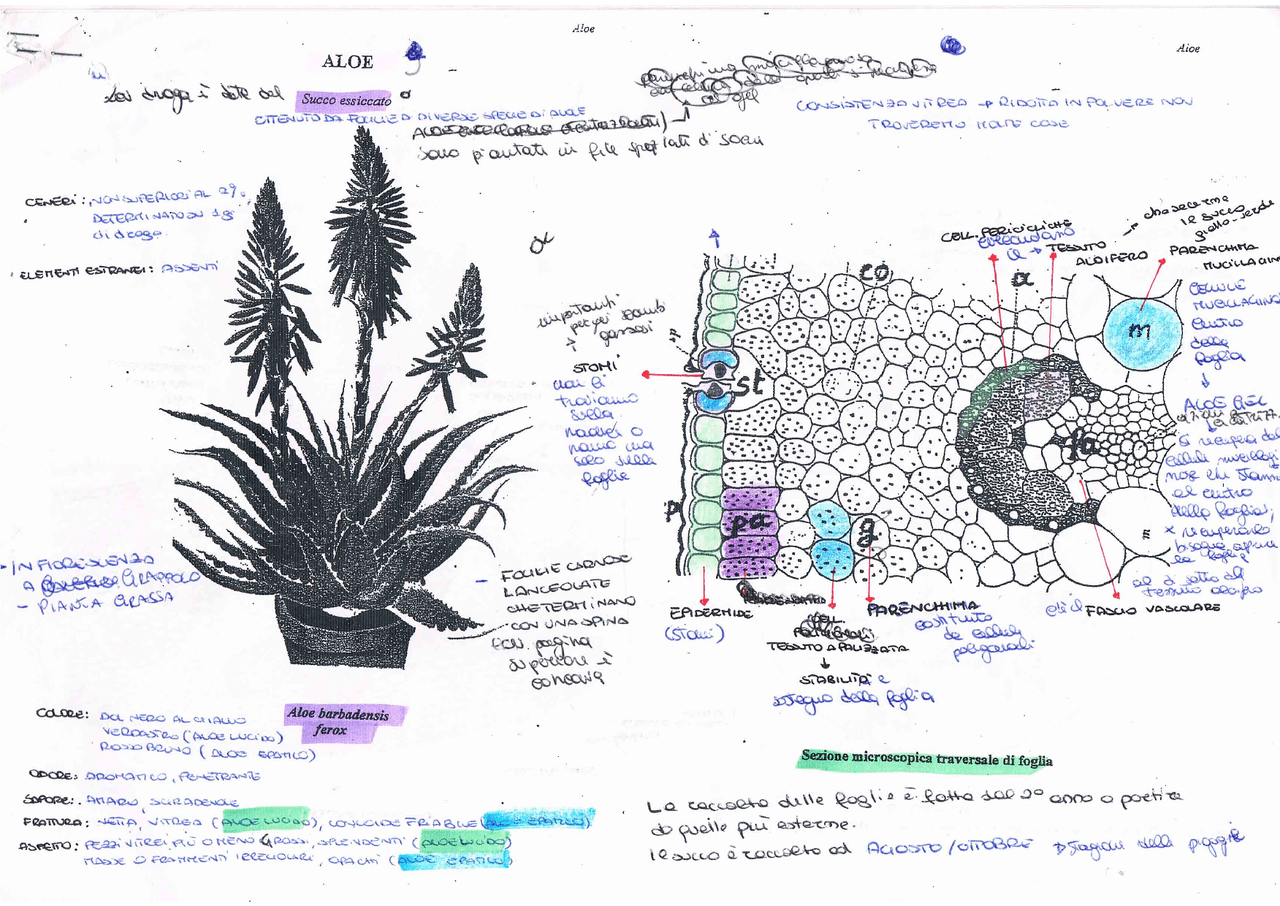 Aloe
Aloe
ALOE
La droga è data dal Succo essiccato
OTTENUTO DA FOGLIE DI DIVERSE SPECIE DI ALOE
sono piantati in file
CONSISTENZA VITREA → RIDOTTA IN POLVERE NON
TROVEREMO MOLTE COSE
CENERI: NON SUPERIORI AL 2%,
DETERMINATO SU 1g
di droga
ELEMENTI ESTRANEI: ASSENTI
- INFIORESCENZA
A GRAPPOLO
- PIANTA GRASSA
- FOGLIE CARNOSE
LANCEOLATE
CHE TERMINANO
CON UNA SPINA
pagina
superiore è
concava
Aloe barbadensis
ferox
COLORE: DAL NERO AL GIALLO
VERDASTRO (ALOE LUCIDO)
ROSSO BRUNO (ALOE EPATICO)
ODORE: AROMATICO, PENETRANTE
SAPORE: AMARO, SGRADEVOLE
FRATTURA: NETTA, VITREA (ALOE LUCIDO), CONCOIDE FRIABILE (ALOE EPATICO)
ASPETTO: PEZZI VITREI, PIÙ O MENO GROSSI, SPLENDENTI (ALOE LUCIDO)
MASSE O FRAMMENTI IRREGOLARI, OPACHI (ALOE EPATICO)
importanti
per gli scambi
gassosi
STOMI
non li
troviamo
sulla
radice o
ramo ma
solo sulla
foglie
CELL. PERICICLICHE
circondano
il → TESSUTO
ALOIFERO
che secerne
il succo
giallo-verde
PARENCHIMA
MUCILLAGIN
CELLULE
MUCILLAGINOSE
centro
della
foglia
↓
ALOE GEL
si recupera dal
cellule mucillagi
nose che stanno
al centro
della foglia,
x recuperarlo
bisogna aprire
la foglia
al di sotto del
tessuto aloifero
co
a
m
st
fa
p
pa
g
m
EPIDERMIDE
(STOMI)
TESSUTO A PALIZZATA
↓
STABILITÀ e
sostegno della foglia
PARENCHIMA
costituito
da cellule
poligonali
FASCIO VASCOLARE
Sezione microscopica traversale di foglia
La raccolta delle foglie è fatta dal 2° anno a partire
da quelle più esterne.
Il succo è raccolto ad AGOSTO/OTTOBRE stagioni delle piogge